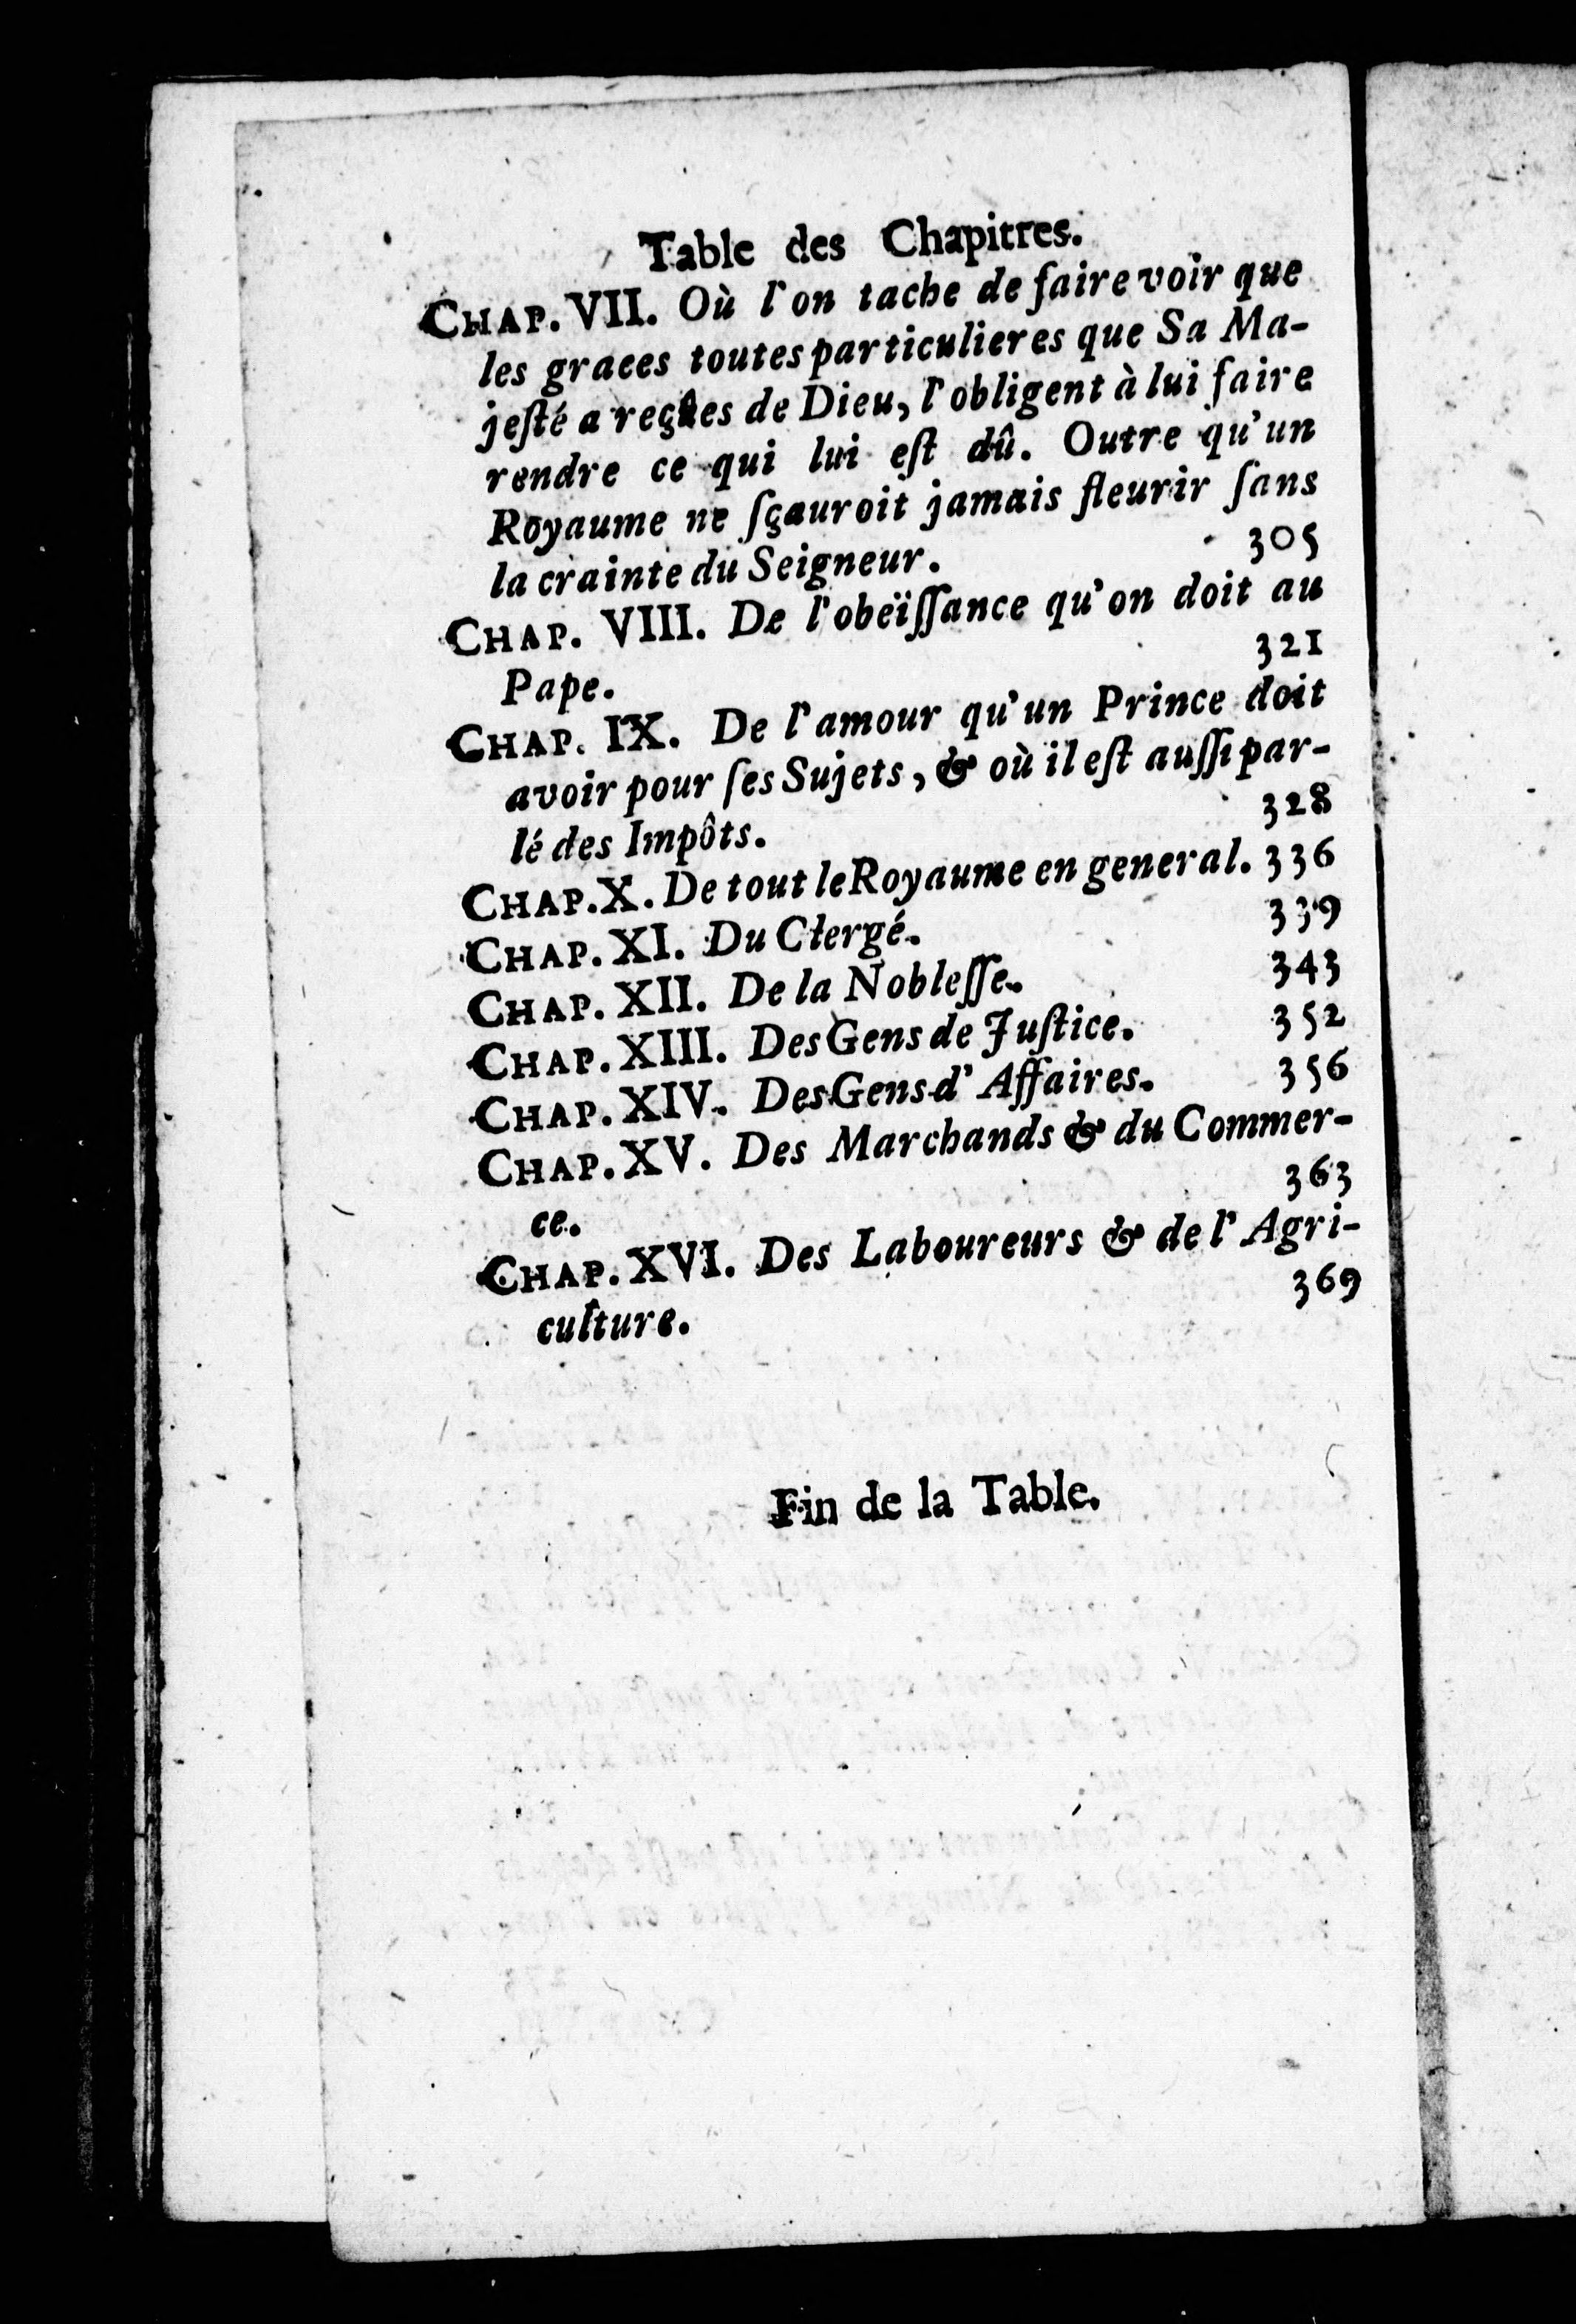 Table des Chapitres.
CHAP. VII. Où l'on tache de faire voir que
les graees toutes particulieres que Sa Ma-
jesté a reçûes de Dieu, l'obligent à lui faire
rendre ce qui lui est dû. Outre qu'un
Royaume ne sçauroit jamais fleurir sans
la crainte du Seigneur. 305
CHAP. VIII. De l'obeïssance qu'on doit au
Pape. 321
CHAP. IX. De l'amour qu'un Prince doit
avoir pour ses Sujets, & où il est aussi par-
lé des Impôts. 328
CHAP. X. De tout le Royaume en general. 336
CHAP. XI. Du Clergé. 339
CHAP. XII. De la Noblesse. 343
CHAP. XIII. Des Gens de Justice. 352
CHAP. XIV. Des Gens d'Affaires. 356
CHAP. XV. Des Marchands & du Commer-
ce. 363
CHAP. XVI. Des Laboureurs & de l'Agri-
culture. 369
Fin de la Table.